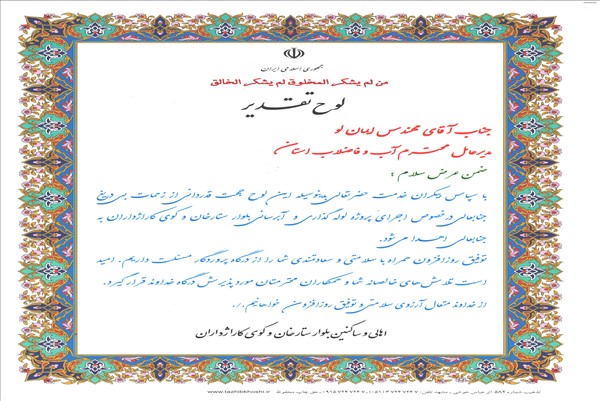 جمهوری اسلامی ایران
من لم یشکر المخلوق لم یشکر الخالق
لوح تقدیر
جناب آقای مهندس امان لو
مدیرعامل محترم آب و فاضلاب استان
ضمن عرض سلام :
با سپاس بیکران خدمت حضرتعالی بدینوسیله این لوح جهت قدردانی از زحمات بی دریغ
جنابعالی در خصوص اجرای پروژه لوله گذاری و آبرسانی بلوار ستارخان و کوی کارآژداران به
جنابعالی اهدا می شود.
توفیق روزافزون همراه با سلامتی و سعادتمندی شما را از درگاه پروردگار مسئلت داریم. امید
است تلاش های خالصانه شما و همکاران محترمتان مورد پذیرش درگاه خداوند قرار گیرد.
از خداوند متعال آرزوی سلامتی و توفیق روزافزون خواهانیم.
اهالی و ساکنین بلوار ستارخان و کوی کارآژداران
www.tazhibkhoshi.ir